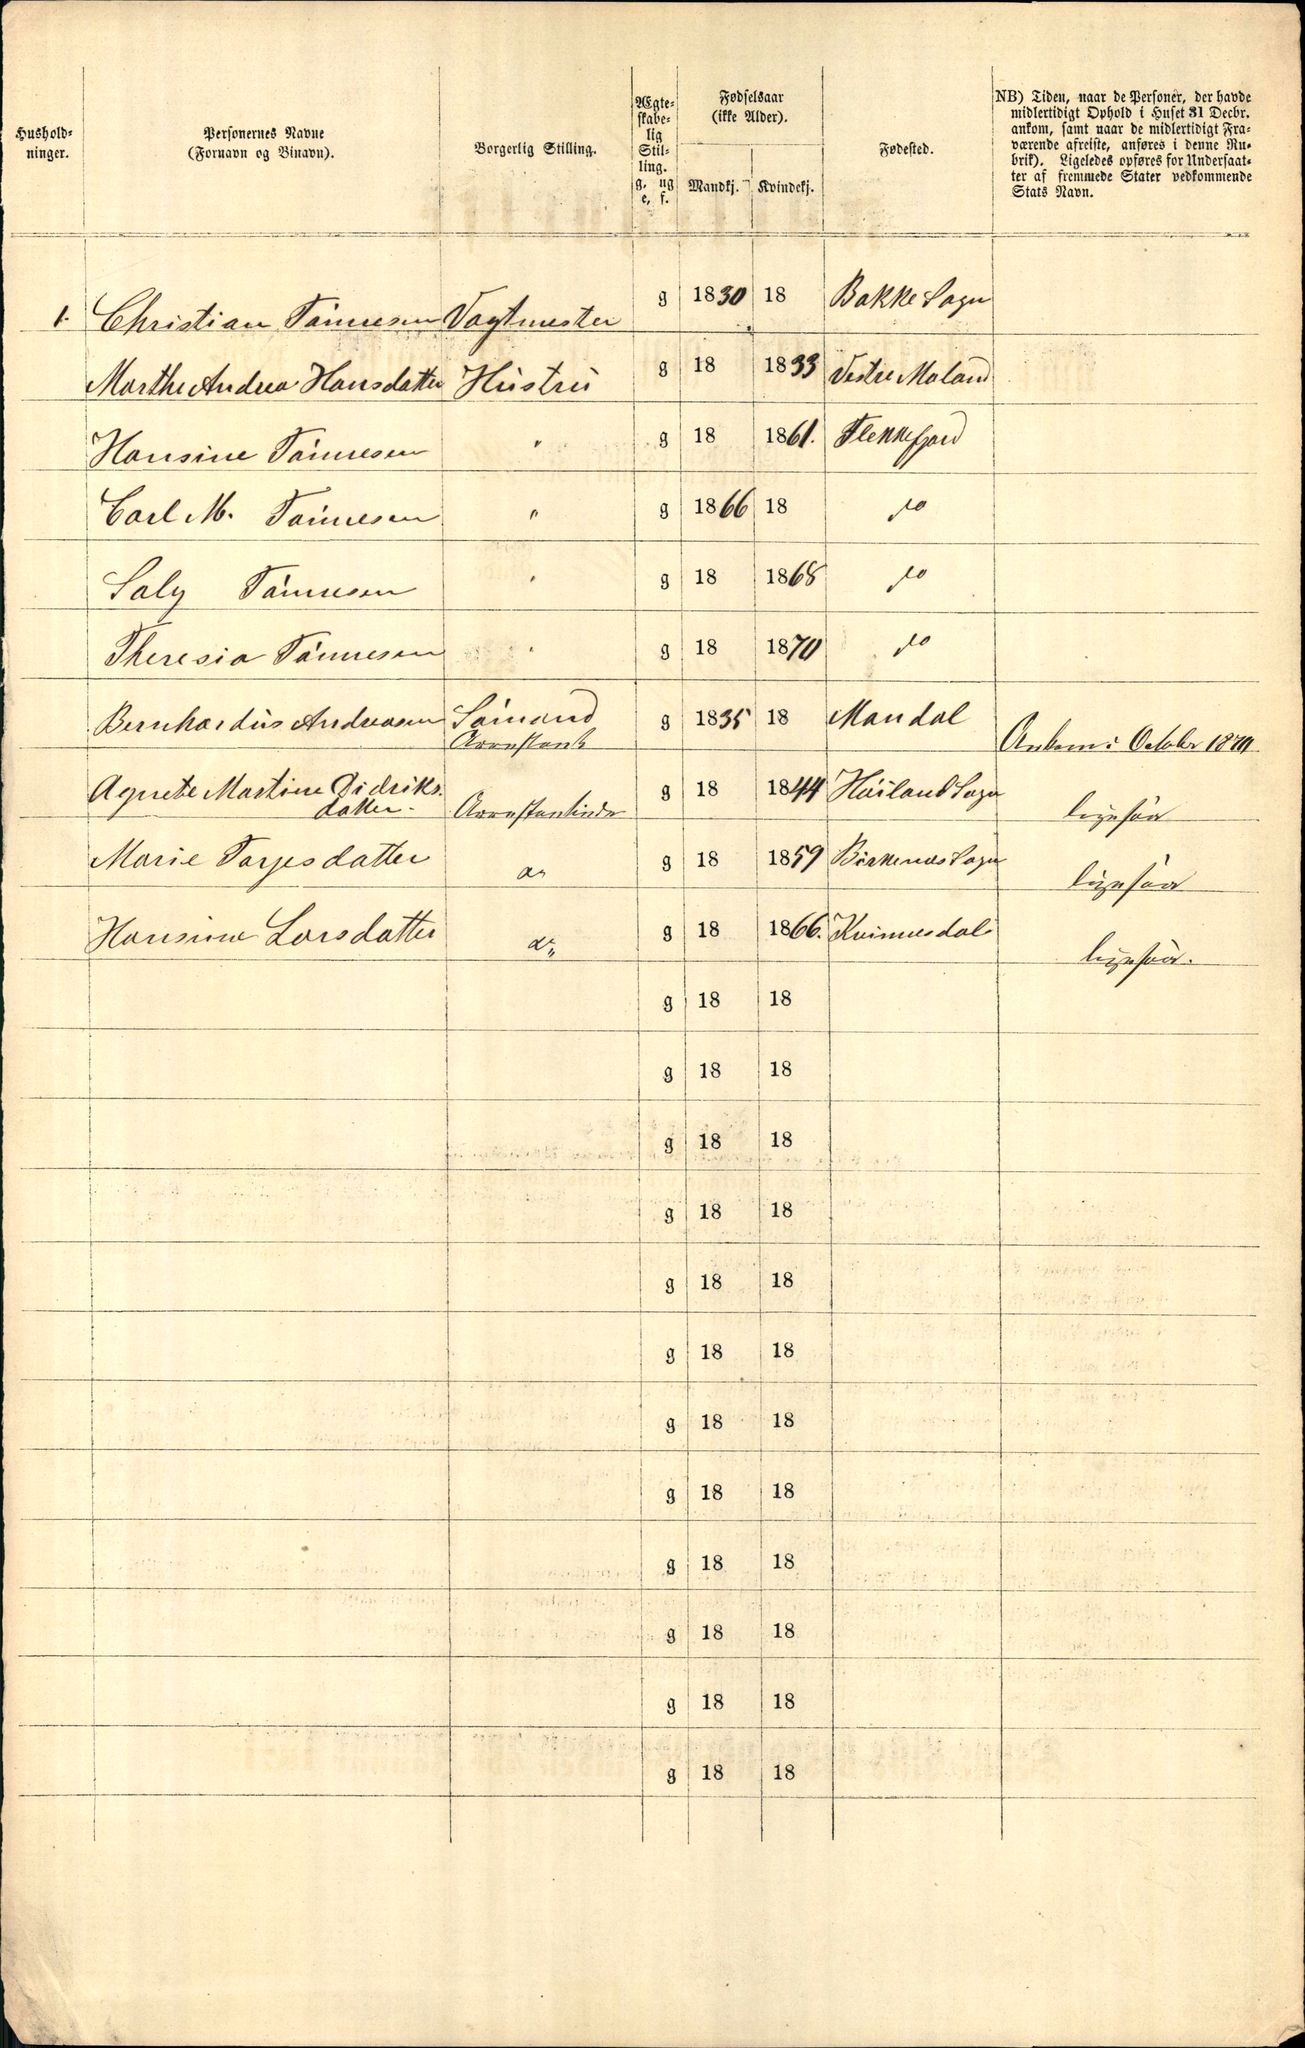 Hushold-
ninger.
Personernes Navne
(Fornavn og Binavn).
Borgerlig Stilling.
Ægte-
skabe-
lig
Stil-
ling.
g, ug
e, f.
Fødselsaar
(ikke Alder).
Mandkj. Kvindekj.
Fødested.
NB) Tiden, naar de Personer, der havde
midlertidigt Ophold i Huset 31 Decbr.
ankom, samt naar de midlertidigt Fra-
værende afreiste, anføres i denne Ru-
brik). Ligeledes opføres for Undersaat-
ter af fremmede Stater vedkommende
Stats Navn.
1. Christian Tønnesen Vagtmester g 1830 18 Bakke Sogn
Marthe Andrea Hansdatter Hustru g 18 1833 Vestre Moland
Hansine Tønnesen " g 18 1861. Flekkefjord
Carl M. Tønnesen " g 1866 18 do
Saly Tønnesen " g 18 1868 do
Theresia Tønnesen " g 18 1870 do
Bernhardus Andreasen Sømand g 1835 18 Mandal
Arrestant Ankom i October 1870
Agnete Martine Didriks- g 18 1844 Høiland Sogn
datter. Arrestantinde ligesaa
Marie Tarjesdatter do g 18 1859 Birkenes Sogn ligesaa
Hansine Larsdatter do g 18 1866. Kvinnesdal ligesaa.
g 18 18
g 18 18
g 18 18
g 18 18
g 18 18
g 18 18
g 18 18
g 18 18
g 18 18
g 18 18
g 18 18
g 18 18